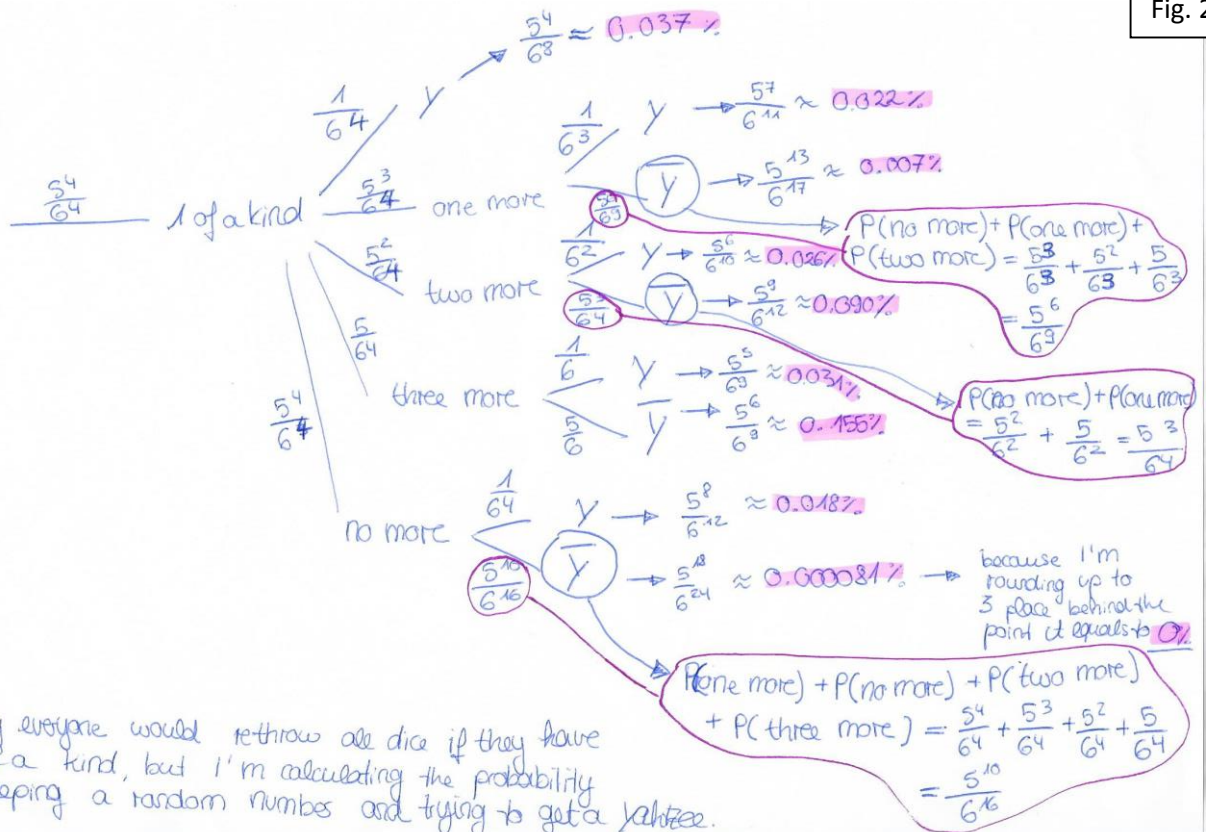 Fig. 2
5^4/6^8 ≈ 0.037%
1/6^4 Y
5^4/6^4 1 of a kind
5^3/6^4 one more
1/6^3 Y → 5^7/6^11 ≈ 0.022%
Y̅ → 5^13/6^17 ≈ 0.007%
P(no more) + P(one more) +
P(two more) = 5^3/6^3 + 5^2/6^3 + 5/6^3
= 5^6/6^9
5^2/6^4 two more
1/6^2 Y → 5^6/6^10 ≈ 0.026%
5^3/6^4 Y̅ → 5^9/6^12 ≈ 0.090%
P(no more) + P(one more)
= 5^2/6^2 + 5/6^2 = 5^3/6^4
5/6^4 three more
1/6 Y → 5^5/6^9 ≈ 0.031%
5/6 Y̅ → 5^6/6^9 ≈ 0.155%
5^4/6^4 no more
1/6^4 Y → 5^8/6^12 ≈ 0.018%
5^10/6^16 Y̅ → 5^18/6^24 ≈ 0.000081% →
because I'm
rounding up to
3 place behind the
point it equals to 0%
P(one more) + P(no more) + P(two more)
+ P(three more) = 5^4/6^4 + 5^3/6^4 + 5^2/6^4 + 5/6^4
= 5^10/6^16
everyone would rethrow all dice if they have
a kind, but I'm calculating the probability
eping a random number and trying to get a yahtzee.